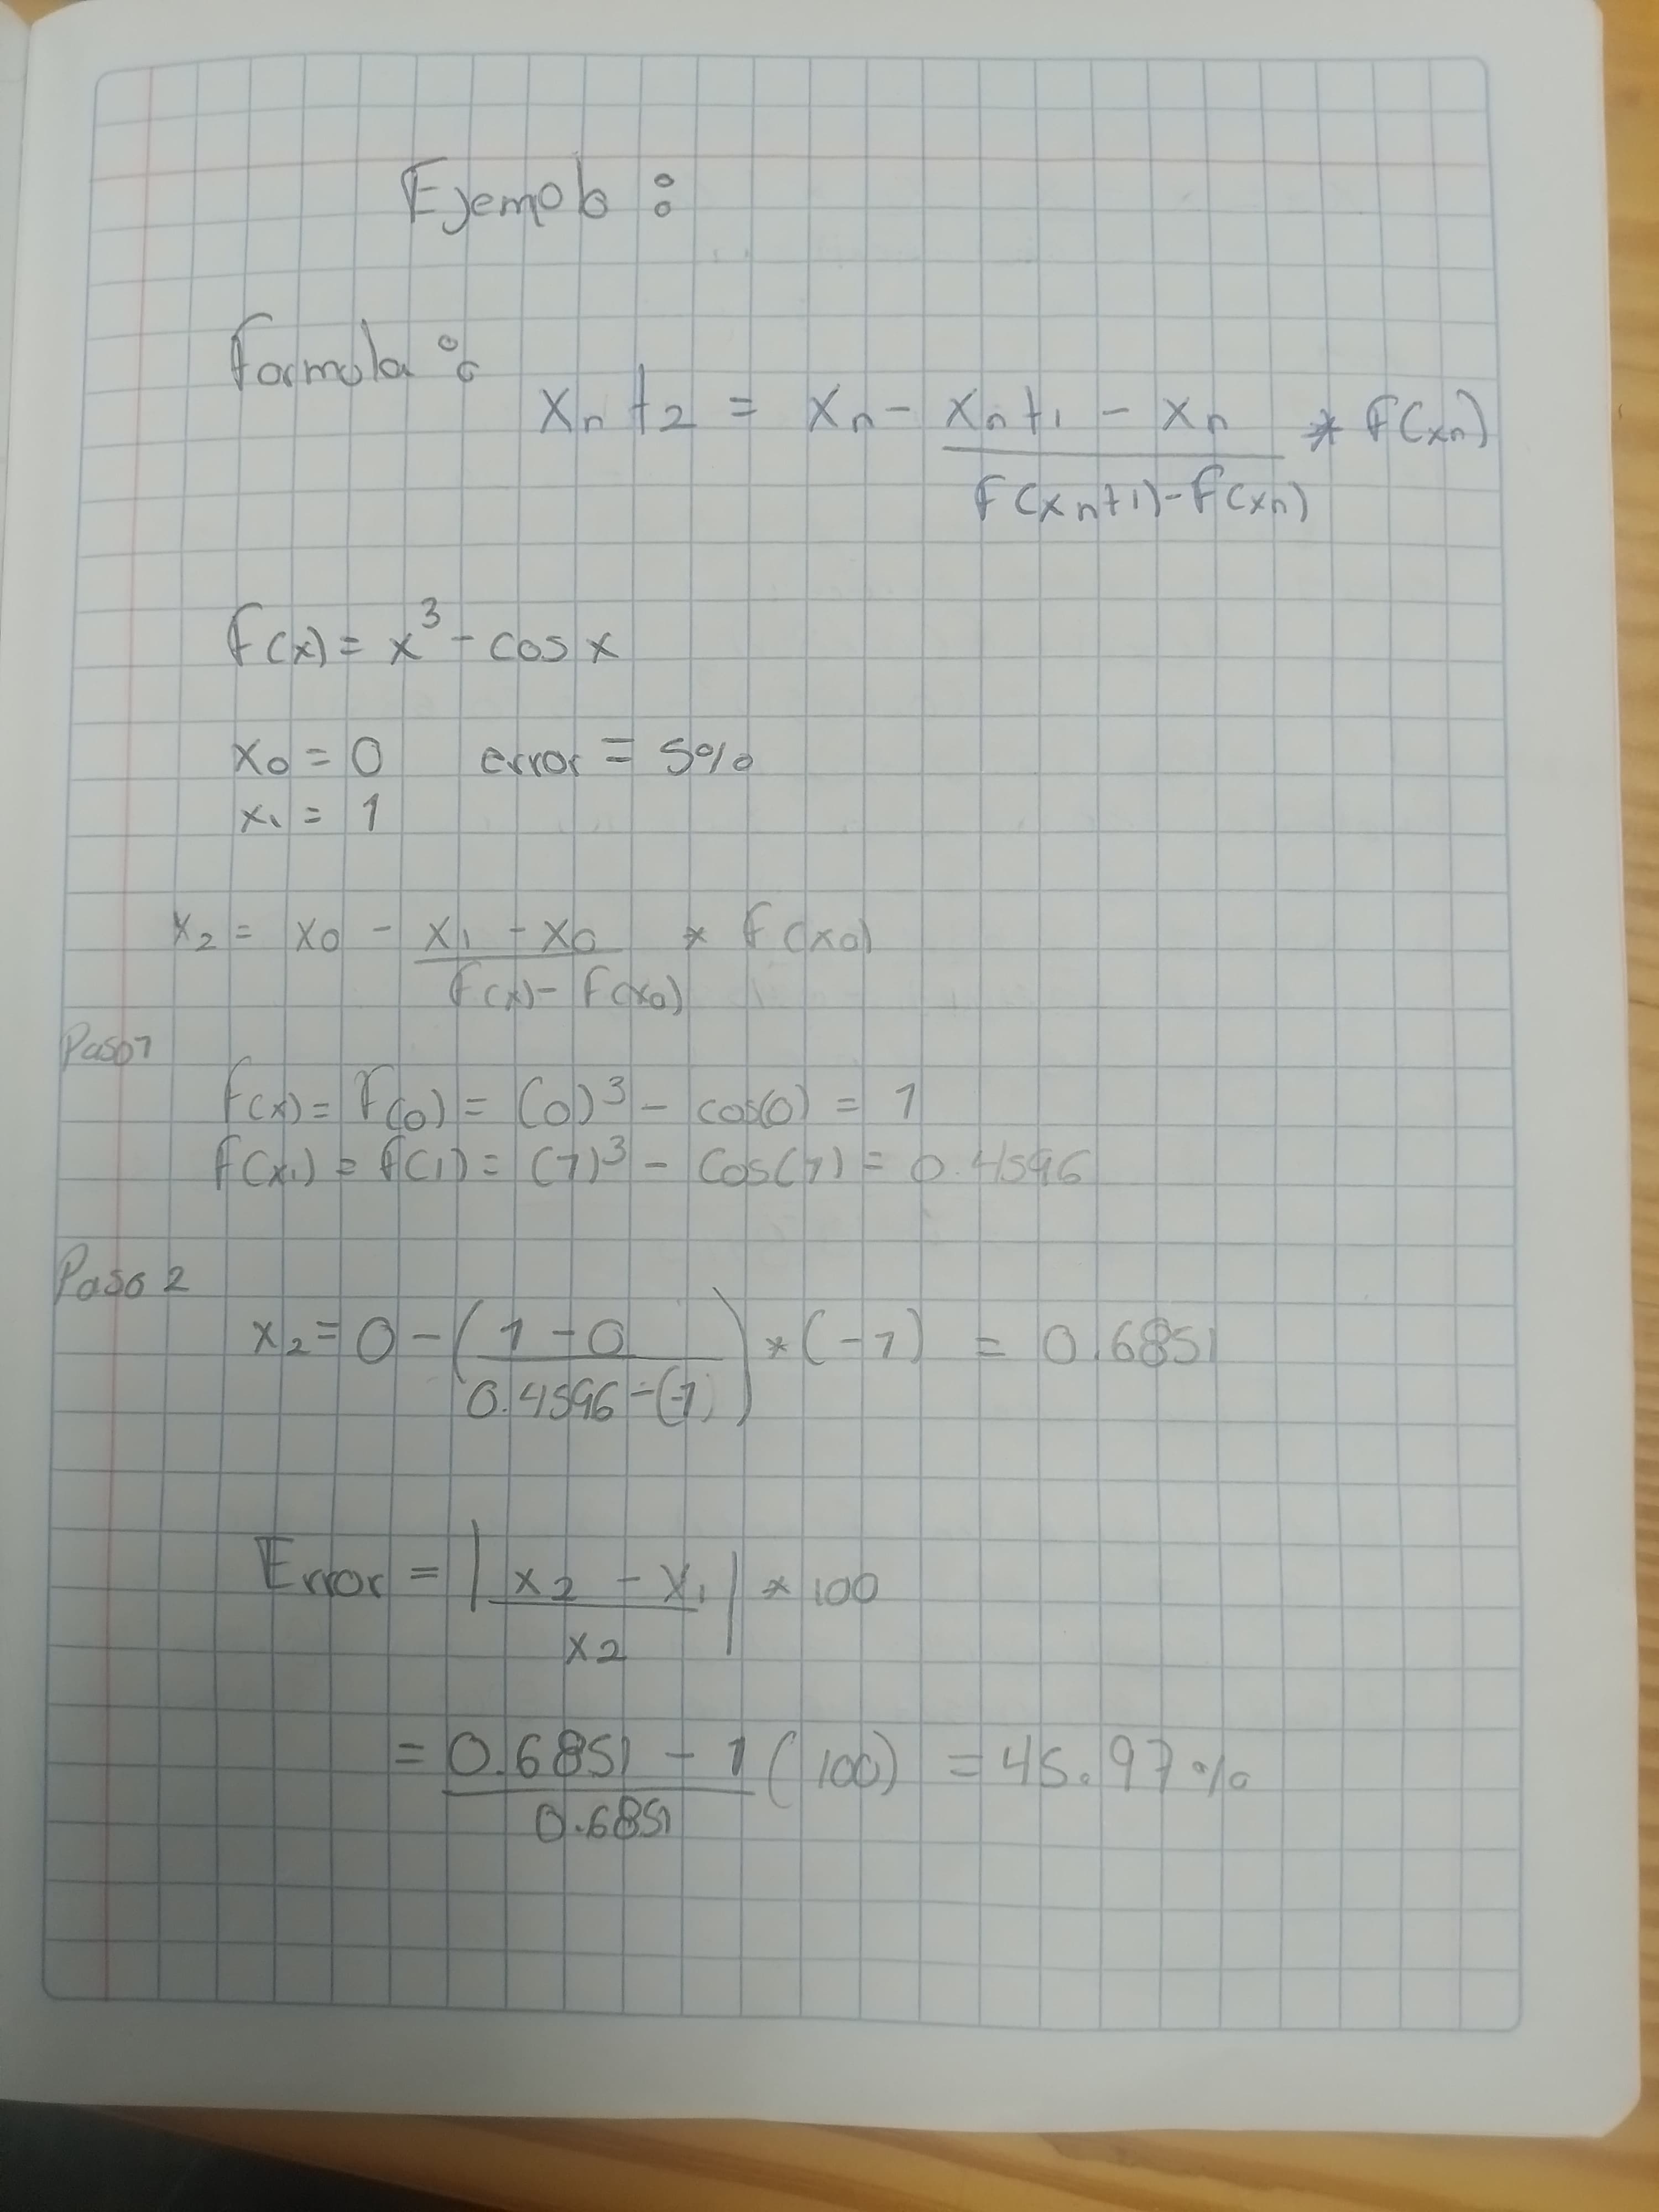 Ejemplo :
Formula :
Xn+2 = Xn - Xn+1 - Xn * F(xn)
F(Xn+1)-F(xn)
F(x) = x³ - cos x
X0 = 0 error = 5%
X1 = 1
X2 = X0 - X1 - X0 * F(X0)
F(x)- F(X0)
Paso 1
F(x) = F(0) = (0)³ - cos(0) = 1
F(X1) = F(1) = (1)³ - Cos(1) = 0.4596
Paso 2
X2 = 0 - ( 1 - 0 ) * (-1) = 0.6851
0.4596 -(-1)
Error = | X2 - X1 | * 100
X2
= 0.6851 - 1 ( 100) = 45.97 %
0.6851